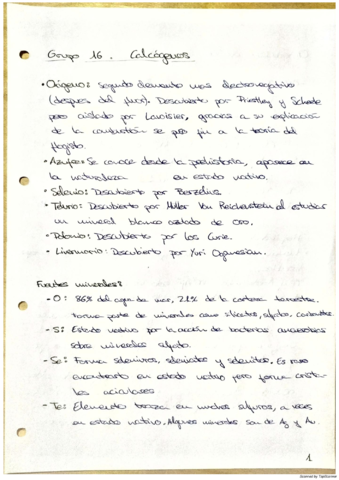 Grupo 16. Calcógenos
• Oxígeno: Segundo elemento mas electronegativo
(después del flúor). Descubierto por Priestley y Scheele
pero aislado por Lavoisier, gracias a su explicación
de la combustión se puso fin a la teoría del
flogisto.
• Azufre: Se conoce desde la prehistoria, aparece en
la naturaleza en estado nativo.
• Selenio: Descubierto por Berzelius.
• Teluro: Descubierto por Müller Von Reichenstein al estudiar
un mineral blanco azulado de oro.
• Polonio: Descubierto por los Curie.
• Livermorio: Descubierto por Yuri Oganessian.
Fuentes minerales:
- O: 86% del agua de mar, 21% de la corteza terrestre.
Forma parte de minerales como silicatos, sulfatos, carbonatos.
- S: Estado nativo por la acción de bacterias anaerobias
sobre minerales sulfato.
- Se: Forma seleniuros, seleniatos y selenitos. Es raro
encontrarlo en estado nativo pero forma crista-
les aciculares.
- Te: Elemento traza en muchos sulfuros, a veces
en estado nativo. Algunos minerales son de Ag y Au.
1
Scanned by TapScanner